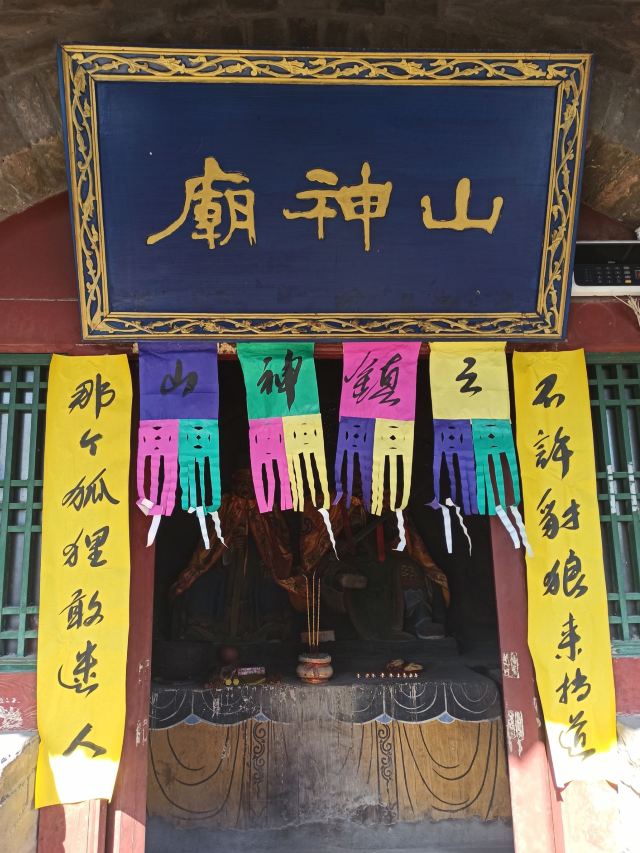 山神廟
山神鎮之
不許豺狼来挡道
那个狐狸敢迷人